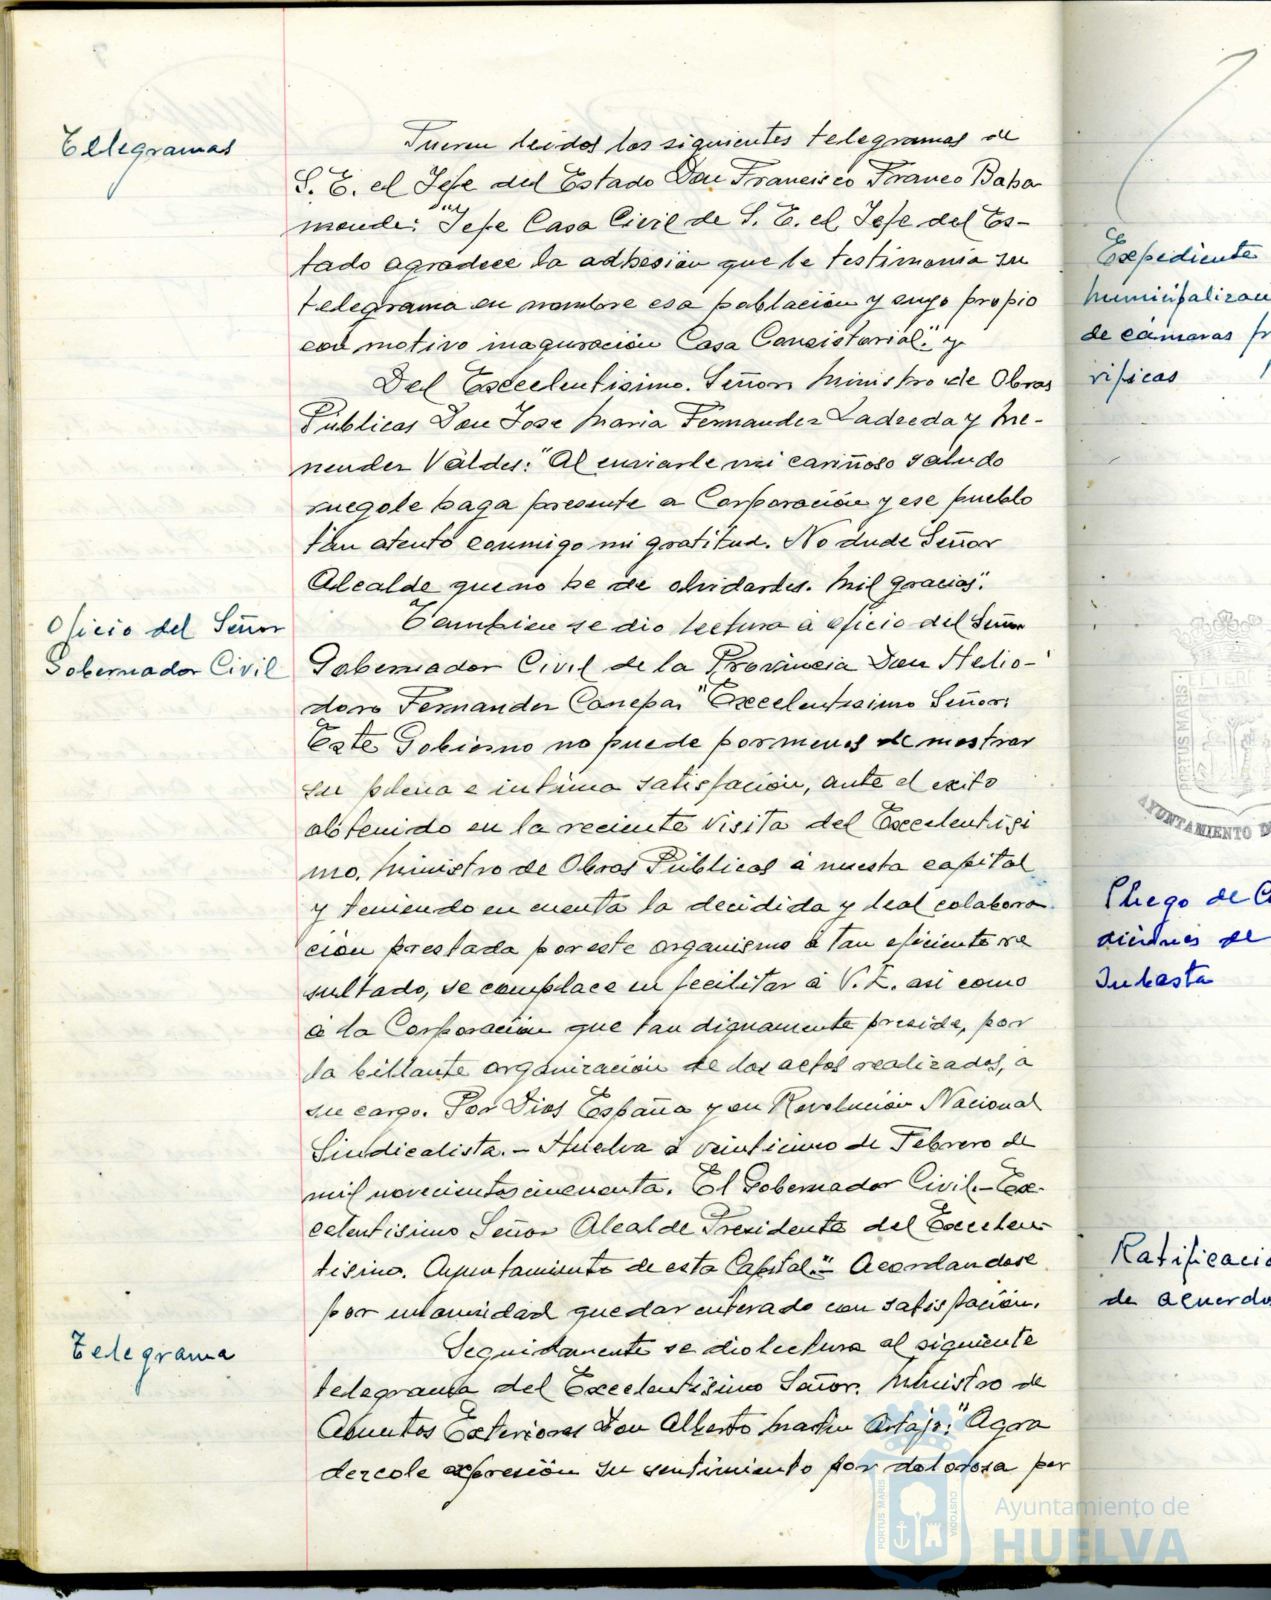 Telegramas
Fueron leidos los siguientes telegramas de
S. E. el Jefe del Estado Don Francisco Franco Baha
monde: "Jefe Casa Civil de S. E. el Jefe del Es-
tado agradece la adhesión que le testimonia su
telegrama en nombre esa población y suyo propio
con motivo inaguración Casa Consistorial." y
Del Excelentisimo. Señor Ministro de Obras
Públicas Don Jose Maria Fernandez Ladreda y Me-
nendez Váldes: "Al enviarle mi cariñoso saludo
ruegole haga presente a Corporación y ese pueblo
tan atento conmigo mi gratitud. No dude Señor
Alcalde que no he de olvidarles. Mil gracias".
Oficio del Señor
Gobernador Civil
Tambien se dio lectura á oficio del Señor
Gobernador Civil de la Provincia Don Helio-
doro Fernandez Canepa, "Excelentisimo Señor:
Este Gobierno no puede por menos demostrar
su plena e intima satisfación, ante el exito
obtenido en la reciente visita del Excelentisi
mo. Ministro de Obras Públicas á nuesta capital
y teniendo en cuenta la decidida y leal colabora
ción prestada por este organismo á tan eficiente re
sultado, se complace en fecilitar á V. E. asi como
á la Corporación que tan dignamente preside, por
la billante organización de los actos realizados, a
su cargo. Por Dios España y su Revolución Nacional
Sindicalista. - Huelva á veinticinco de Febrero de
mil novecientos cincuenta. El Gobernador Civil.- Ex-
celentisimo Señor Alcalde Presidente del Excelen-
tisimo. Ayuntamiento de esta Capital."- Acordandose
por unanimidad quedar enterado con satisfación.
Telegrama
Seguidamente se dio lectura al siguiente
telegrama del Excelentisimo Señor. Ministro de
Asuntos Exteriores Don Alberto Martin Artajo: "Agra
dezcole expresión su sentimiento por dolorosa per
Expediente
Municipalizaci
de cámaras fr
rificas
PORTUS MARIS ET TERR
AYUNTAMIENTO D
Pliego de Co
diciones de
Subasta
Ratificació
de acuerdo
PORTUS MARIS
CUSTODIA
Ayuntamiento de
HUELVA